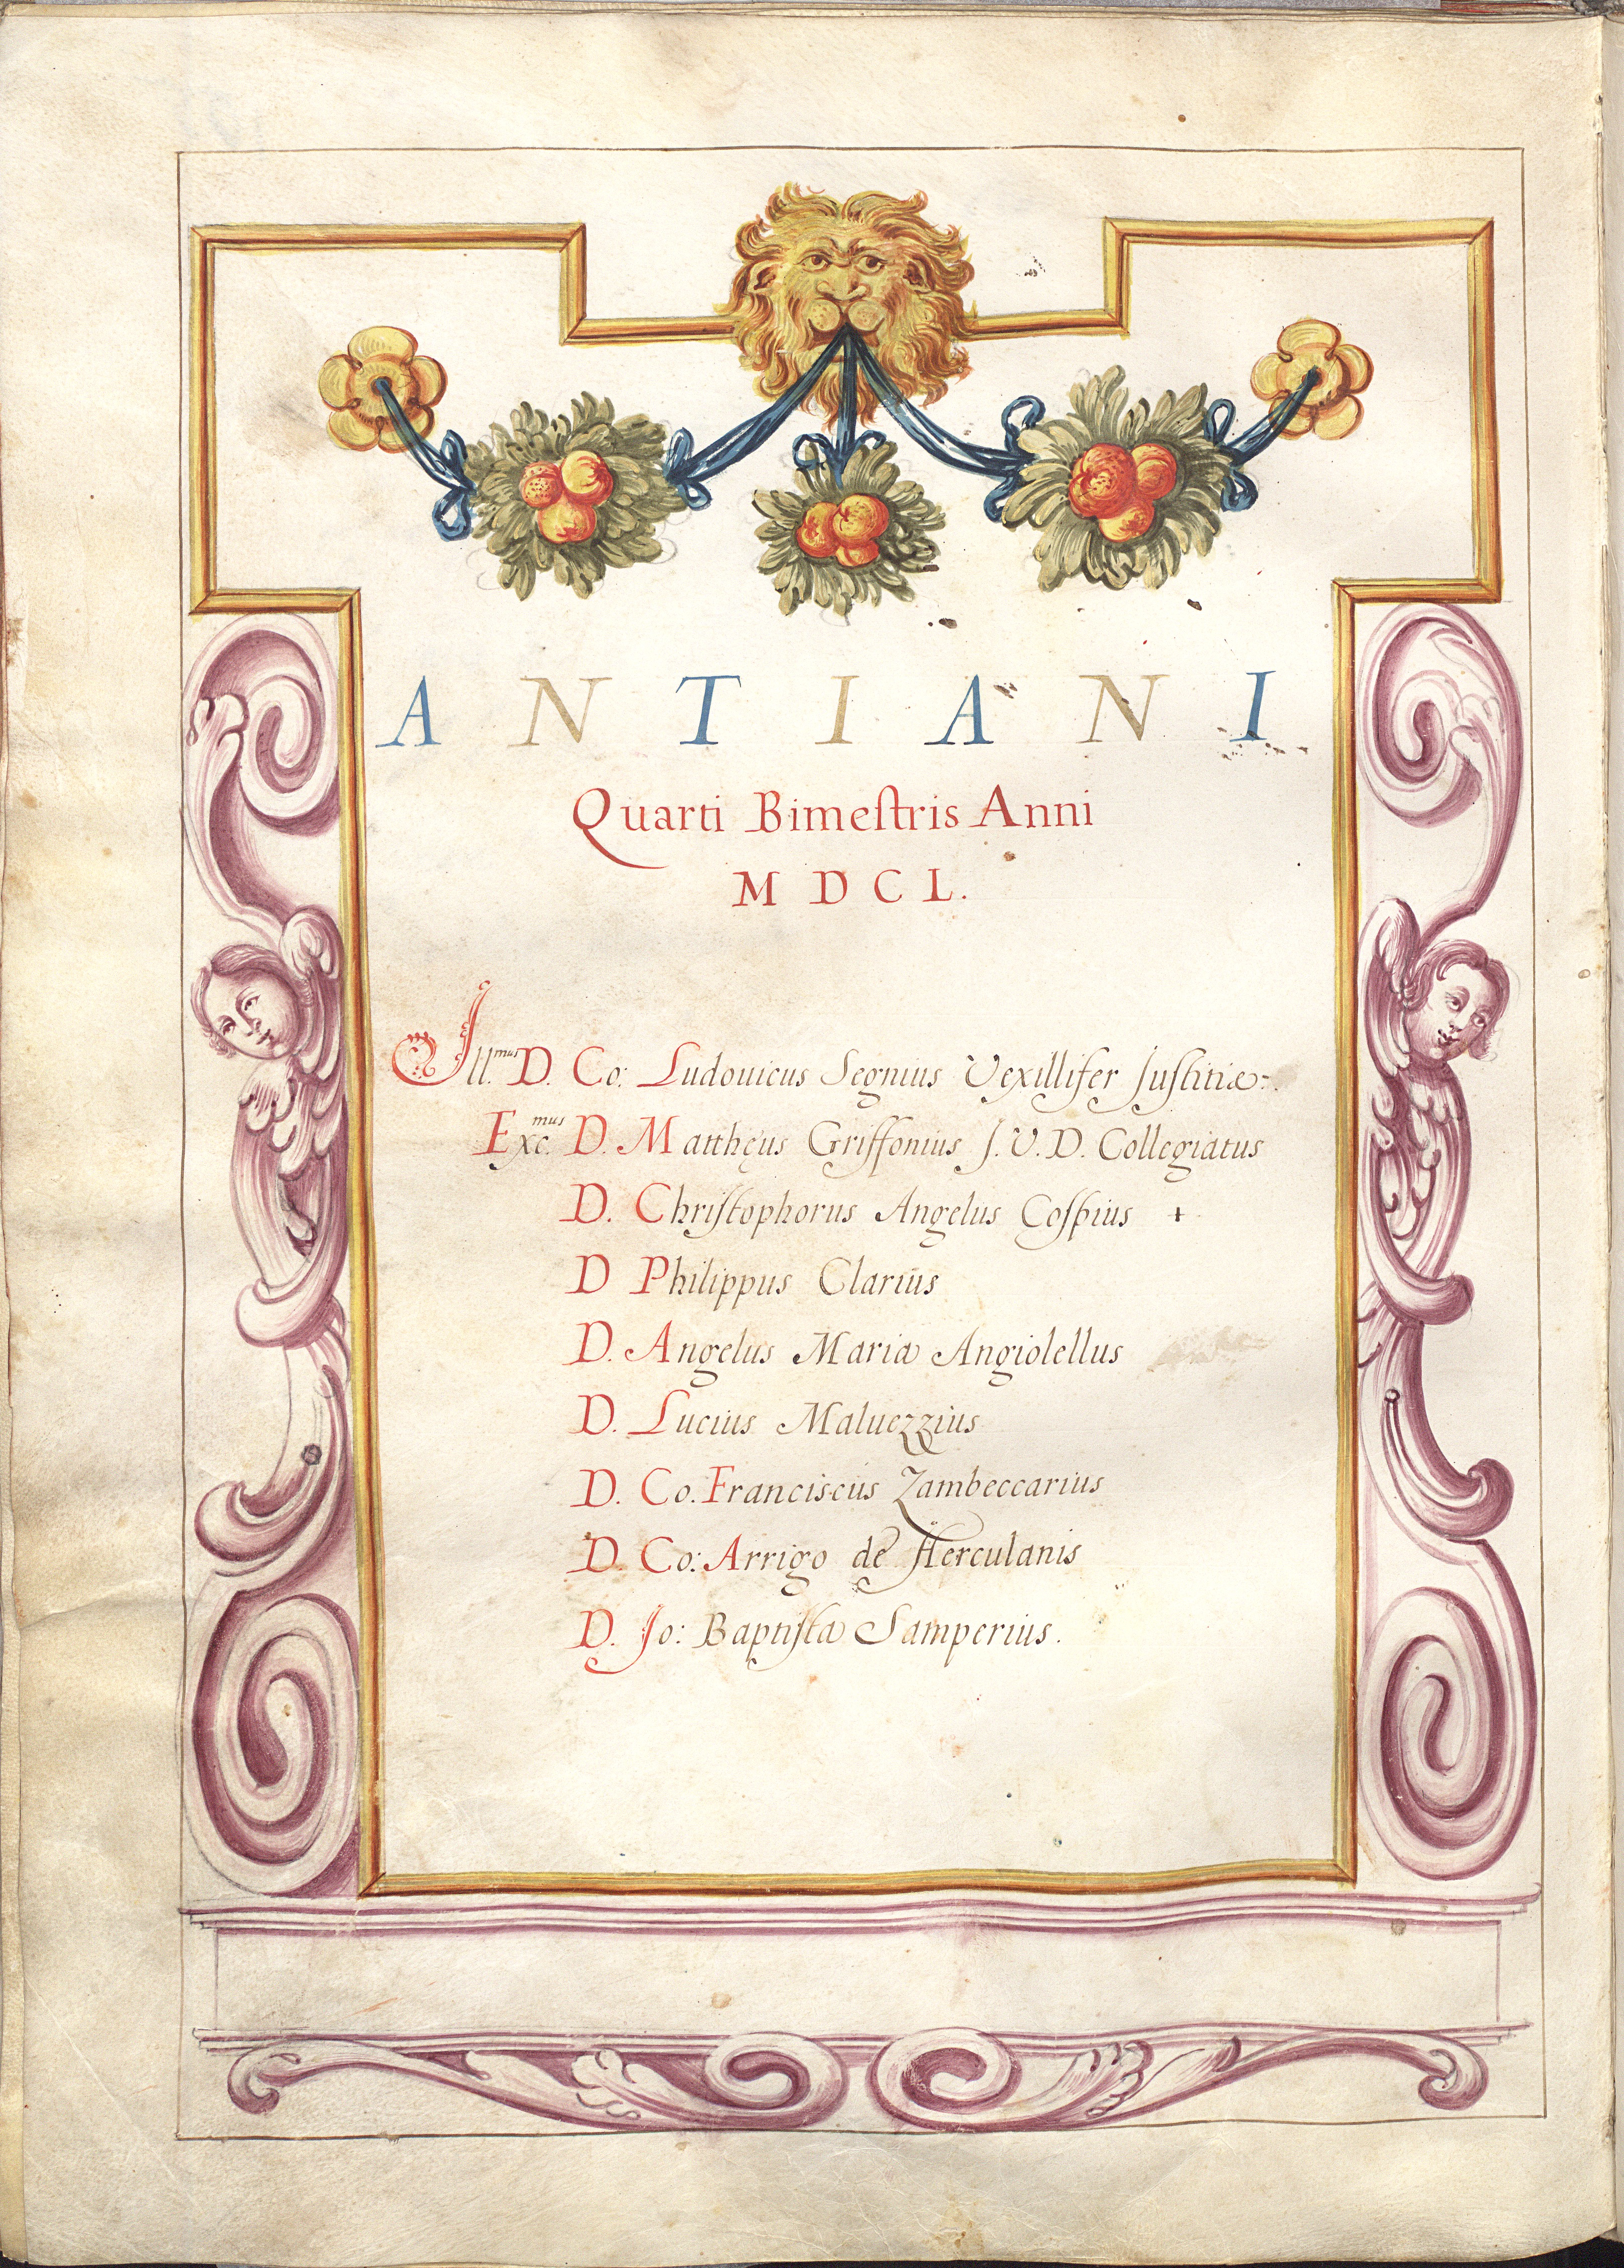 ANTIANI
Quarti Bimeſtris Anni
MDCL.
Ill.mus D. Co: Ludouicus Segnius Vexillifer Juſtitiæ.
Exc.mus D. Matthęus Griffonius J. V. D. Collegiatus
D. Chriſtophorus Angelus Coſpius +
D Philippus Clarius
D. Angelus Maria Angiolellus
D. Lucius Maluezzius
D. Co. Franciscus Zambeccarius
D. Co: Arrigo de Herculanis
D. Jo: Baptiſta Samperius.